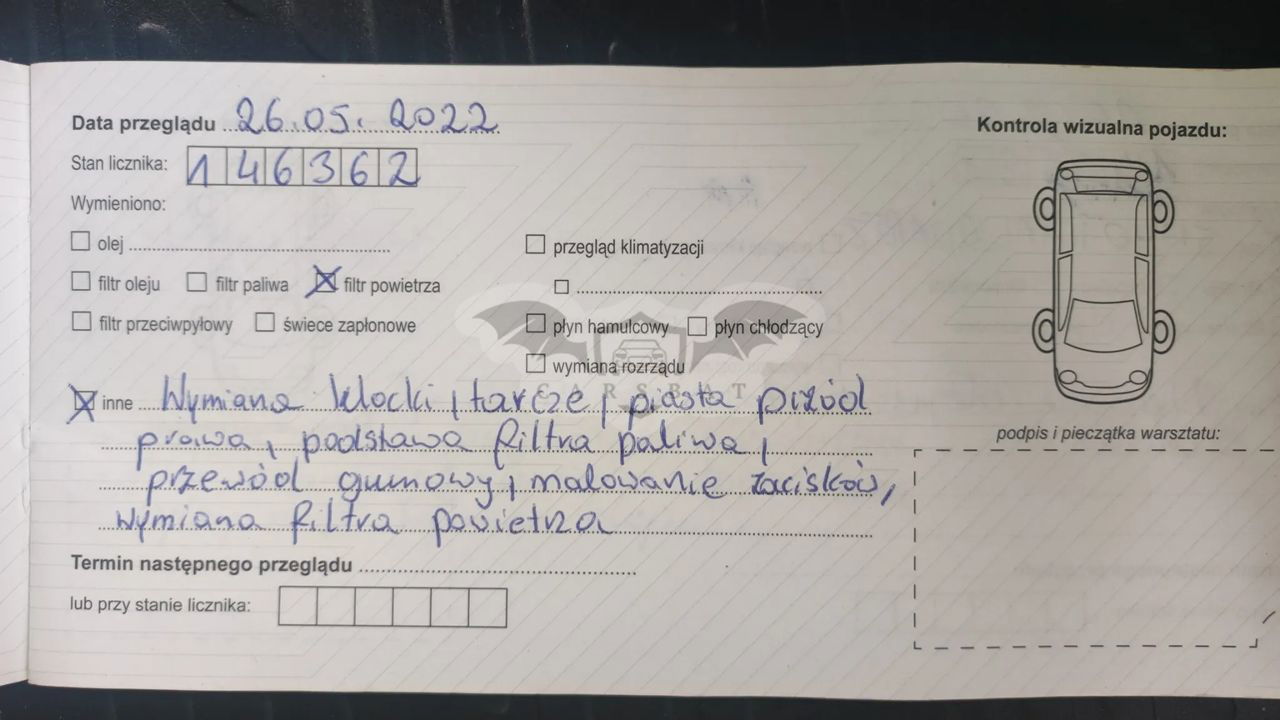 Data przeglądu 26.05.2022
Kontrola wizualna pojazdu:
Stan licznika: 146362
Wymieniono:
olej
przegląd klimatyzacji
filtr oleju filtr paliwa filtr powietrza
filtr przeciwpyłowy świece zapłonowe
płyn hamulcowy płyn chłodzący
wymiana rozrządu
CARSBAT
inne Wymiana klocki, tarcze, piasta przód
prawa, podstawa filtra paliwa,
przewód gumowy, malowanie zacisków,
wymiana filtra powietrza
podpis i pieczątka warsztatu:
Termin następnego przeglądu
lub przy stanie licznika: